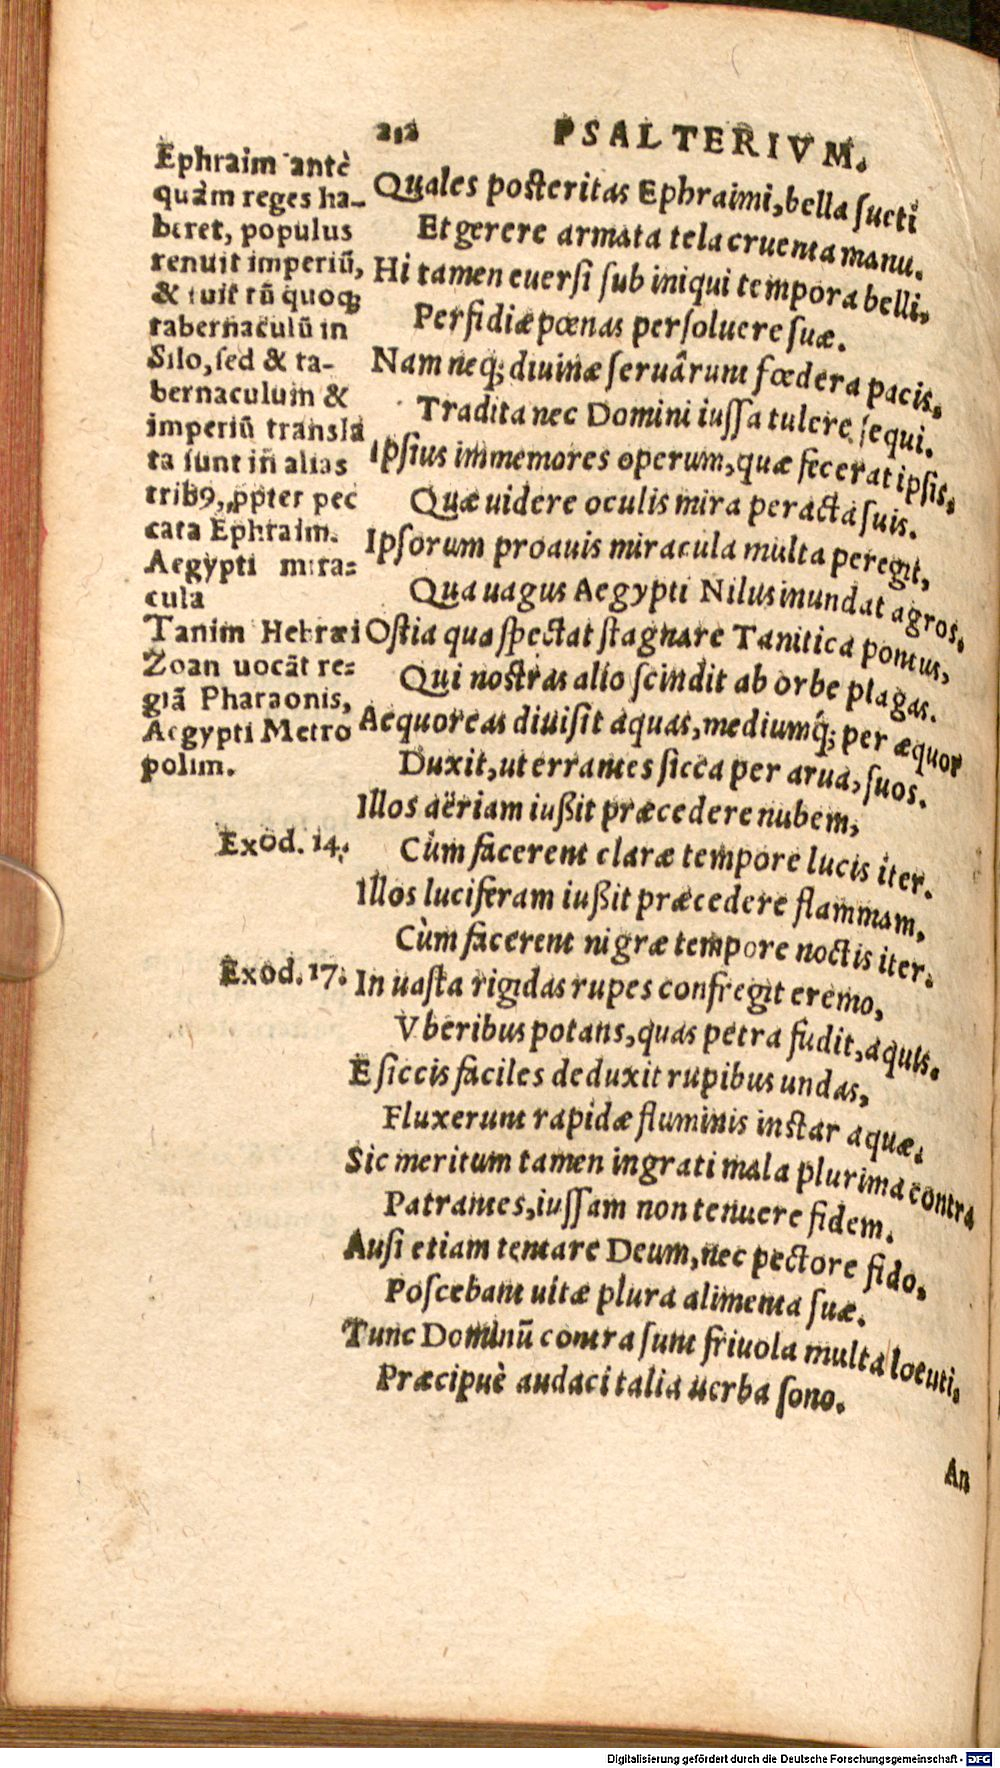 212 PSALTERIVM.
Ephraim antè
quàm reges ha-
beret, populus
tenuit imperiũ,
& fuit tũ quoq;
tabernaculũ in
Silo, sed & ta-
bernaculum &
imperiũ transla
ta sunt in alias
trib9, ꝓpter pec
cata Ephraim.
Aegypti mira-
cula
Tanim Hebræi
Zoan uocãt re-
giã Pharaonis,
Aegypti Metro
polim.
Exod. 14.
Exod. 17.
Quales posteritas Ephraimi, bella sueti
Et gerere armata tela cruenta manu.
Hi tamen euersi sub iniqui tempora belli,
Perfidiæ pœnas persoluere suæ.
Nam neq; diuinæ seruârunt fœdera pacis,
Tradita nec Domini iussa tulere sequi.
Ipsius immemores operum, quæ fecerat ipsis,
Quæ uidere oculis mira peracta suis.
Ipsorum proauis miracula multa peregit,
Qua uagus Aegypti Nilus inundat agros.
Ostia qua spectat stagnare Tanitica pontus,
Qui nostras alio scindit ab orbe plagas.
Aequoreas diuisit aquas, mediumq́; per æquor
Duxit, ut errantes sicca per arua, suos.
Illos aëriam iußit præcedere nubem,
Cùm facerent claræ tempore lucis iter.
Illos luciferam iußit præcedere flammam,
Cùm facerent nigræ tempore noctis iter.
In uasta rigidas rupes confregit eremo,
Vberibus potans, quas petra fudit, aquis.
E siccis faciles deduxit rupibus undas,
Fluxerunt rapidæ fluminis instar aquæ.
Sic meritum tamen ingrati mala plurima contra
Patrantes, iussam non tenuere fidem.
Ausi etiam tentare Deum, nec pectore fido,
Poscebant uitæ plura alimenta suæ.
Tunc Dominũ contra sunt friuola multa locuti,
Præcipuè audaci talia uerba sono.
An
Digitalisierung gefördert durch die Deutsche Forschungsgemeinschaft - DFG